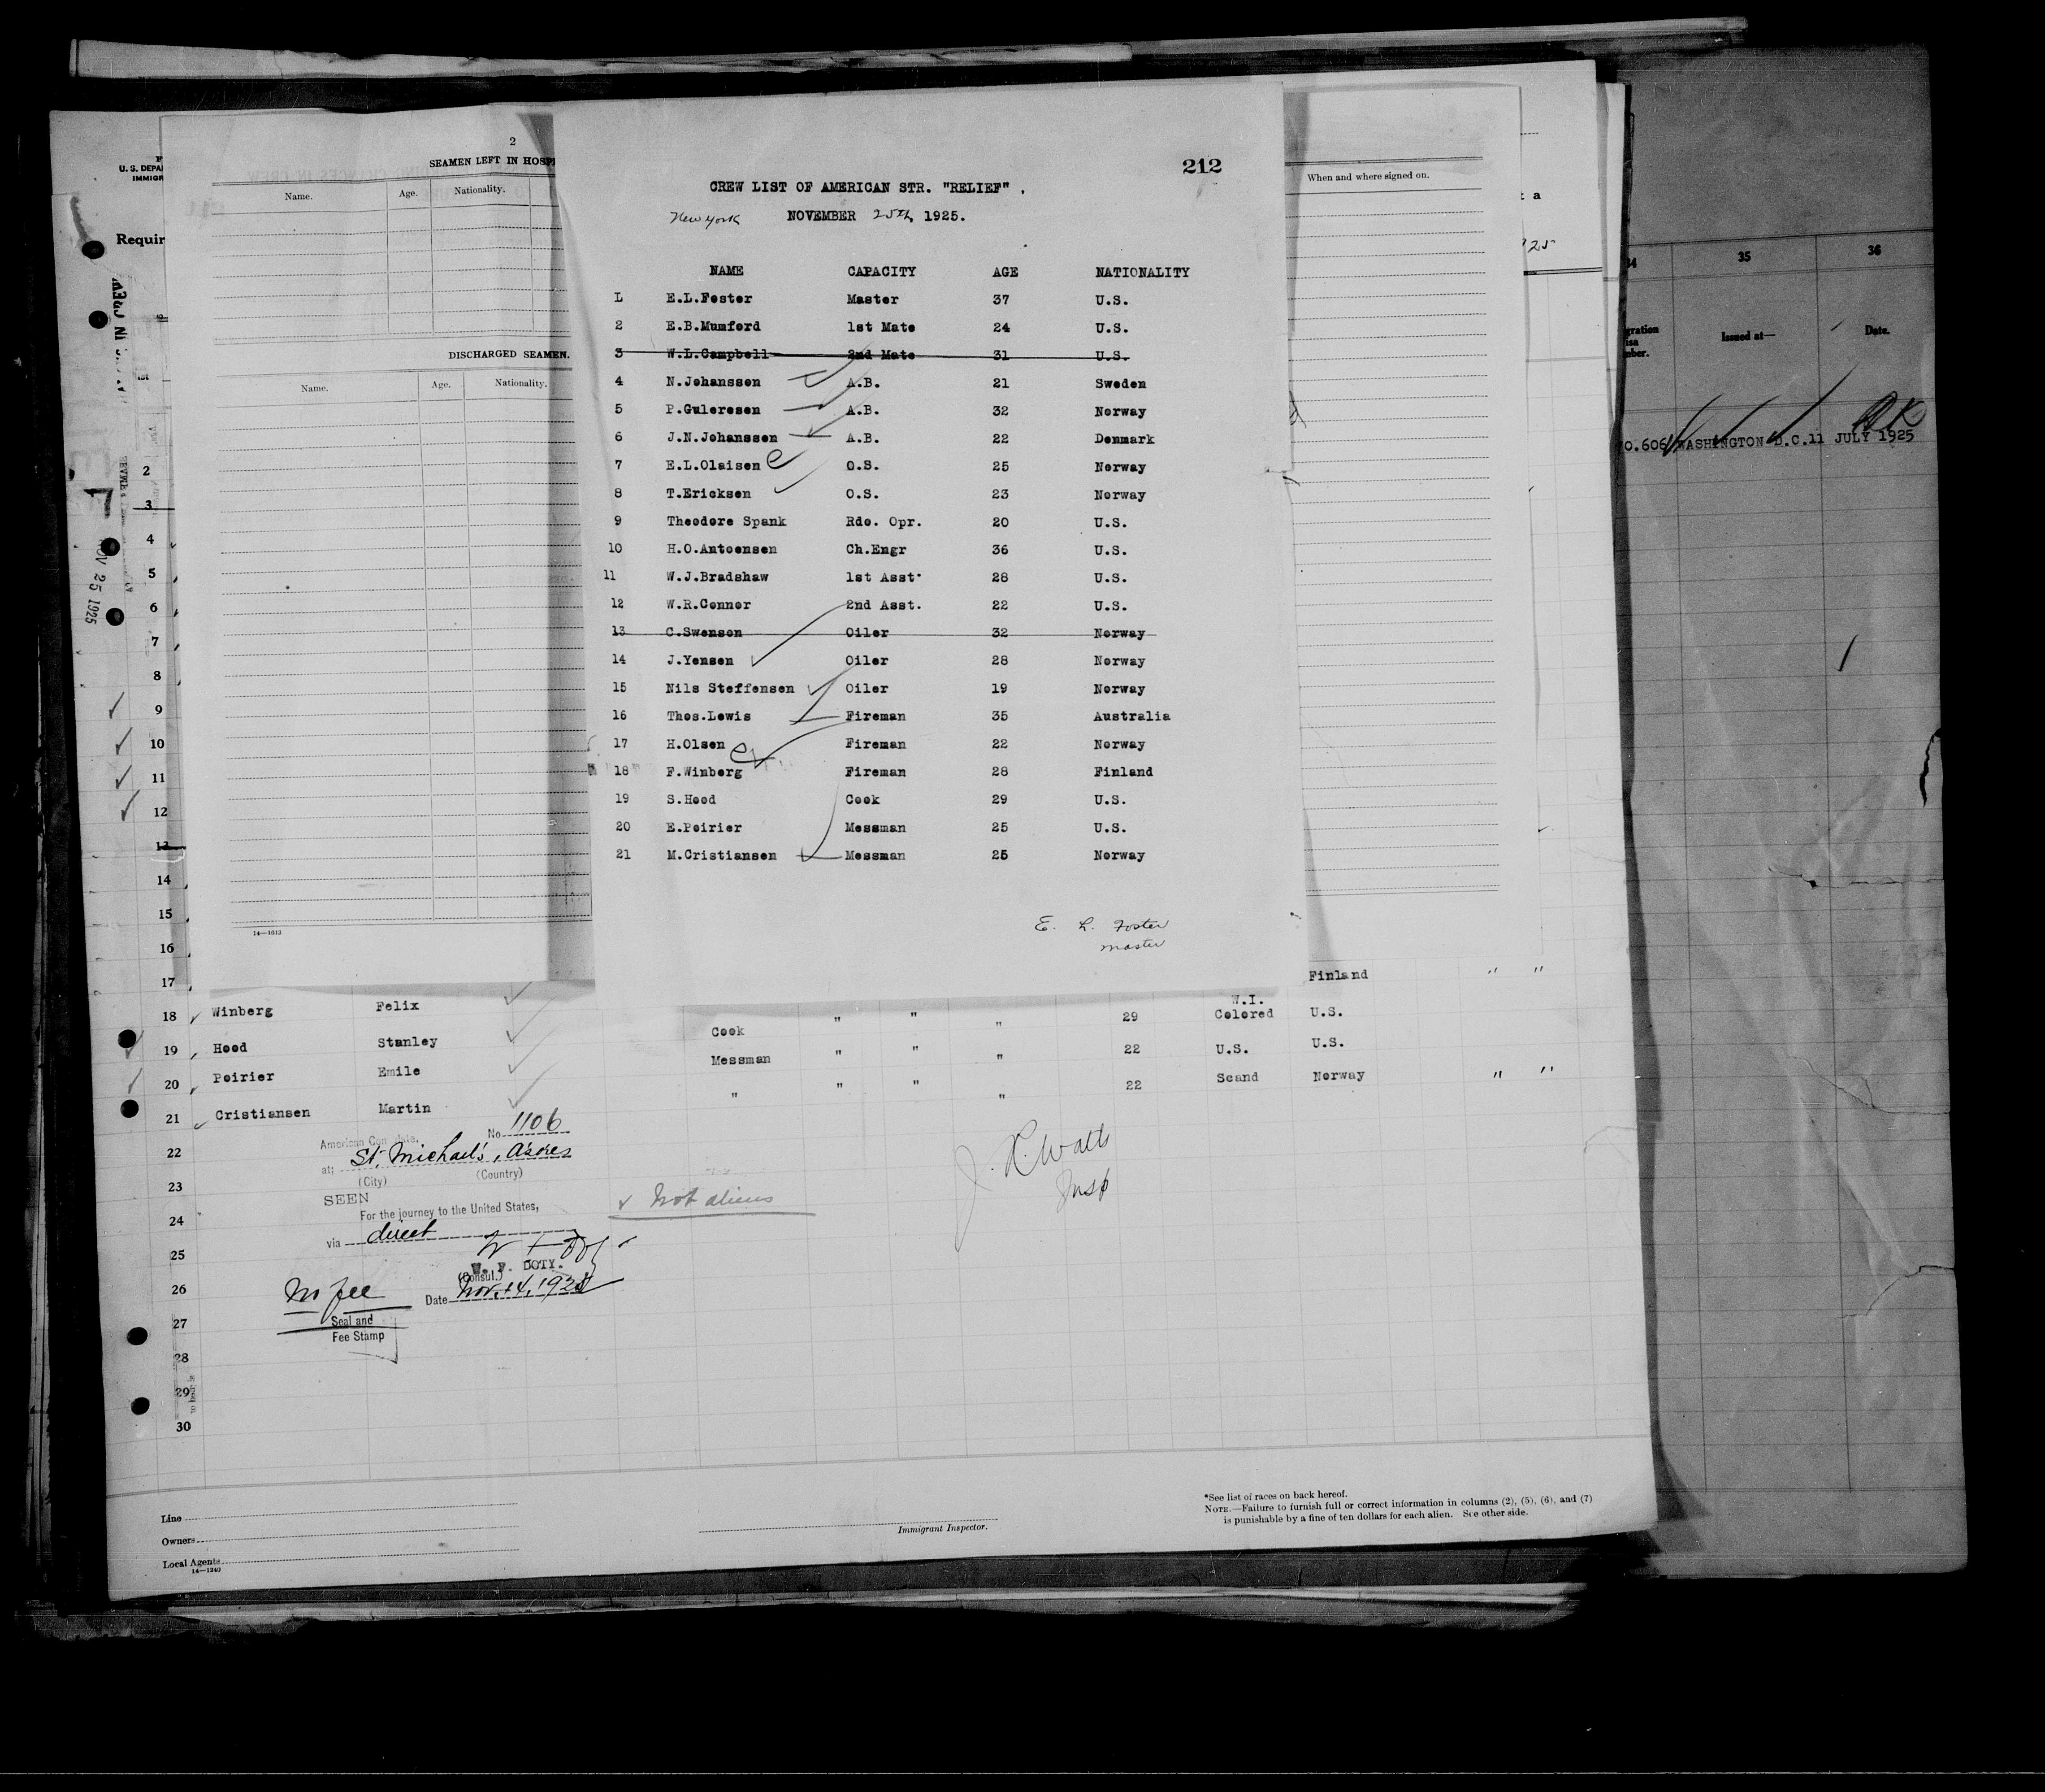 212
CREW LIST OF AMERICAN STR. "RELIEF" .
New York NOVEMBER 25th, 1925.
NAME CAPACITY AGE NATIONALITY
1 E.L.Foster Master 37 U.S.
2 E.B.Mumford 1st Mate 24 U.S.
3 W.L.Campbell 2nd Mate 31 U.S.
4 N.Johanssen A.B. 21 Sweden
5 P.Guleresen A.B. 32 Norway
6 J.N.Johanssen A.B. 22 Denmark
7 E.L.Olaisen O.S. 25 Norway
8 T.Ericksen O.S. 23 Norway
9 Theodore Spank Rdo. Opr. 20 U.S.
10 H.O.Antoensen Ch.Engr 36 U.S.
11 W.J.Bradshaw 1st Asst. 28 U.S.
12 W.R.Connor 2nd Asst. 22 U.S.
13 C.Swensen Oiler 32 Norway
14 J.Yensen Oiler 28 Norway
15 Nils Steffensen Oiler 19 Norway
16 Thos.Lewis Fireman 35 Australia
17 H.Olsen Fireman 22 Norway
18 F.Winberg Fireman 28 Finland
19 S.Hood Cook 29 U.S.
20 E.Poirier Messman 25 U.S.
21 M.Cristiansen Messman 25 Norway
E. L. Foster
master
2
SEAMEN LEFT IN HOSPI
Name. Age. Nationality.
DISCHARGED SEAMEN.
Name. Age. Nationality.
14—1613
When and where signed on.
U. S. DEPA
IMMIGR
Requir
NOV 25 1925
2
3
4
5
6
7
8
9
10
11
12
13
14
15
16
17
Finland " "
18 Winberg Felix
Cook " " " 29 W.I. Colored U.S.
19 Hood Stanley
Messman " " " 22 U.S. U.S.
20 Poirier Emile
" " " " 22 Scand Norway " "
21 Cristiansen Martin
22
23
24
25
26
27
28
29
30
No. 1106
at; St. Michael's, Azores
(City) (Country)
SEEN
For the journey to the United States,
via direct
W. F. DOTY.
(Consul.)
Date Nov. 14, 1925
No fee
Seal and
Fee Stamp
Not aliens
J. R. Watts
Insp
Line
Owners
Local Agents
14—1240
Immigrant Inspector.
*See list of races on back hereof.
NOTE.—Failure to furnish full or correct information in columns (2), (5), (6), and (7)
is punishable by a fine of ten dollars for each alien. See other side.
34 35 36
Issued at— Date.
O.606 WASHINGTON D.C.11 JULY 1925
OK